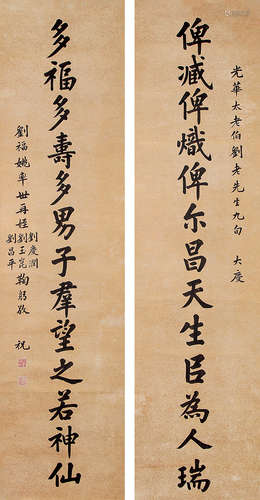 光華太老伯劉老先生九旬 大慶
俾臧俾熾俾尔昌天生臣為人瑞
多福多壽多男子羣望之若神仙
劉福姚率世再姪
劉慶潤
劉玉崑
劉昌平
鞠躬敬祝